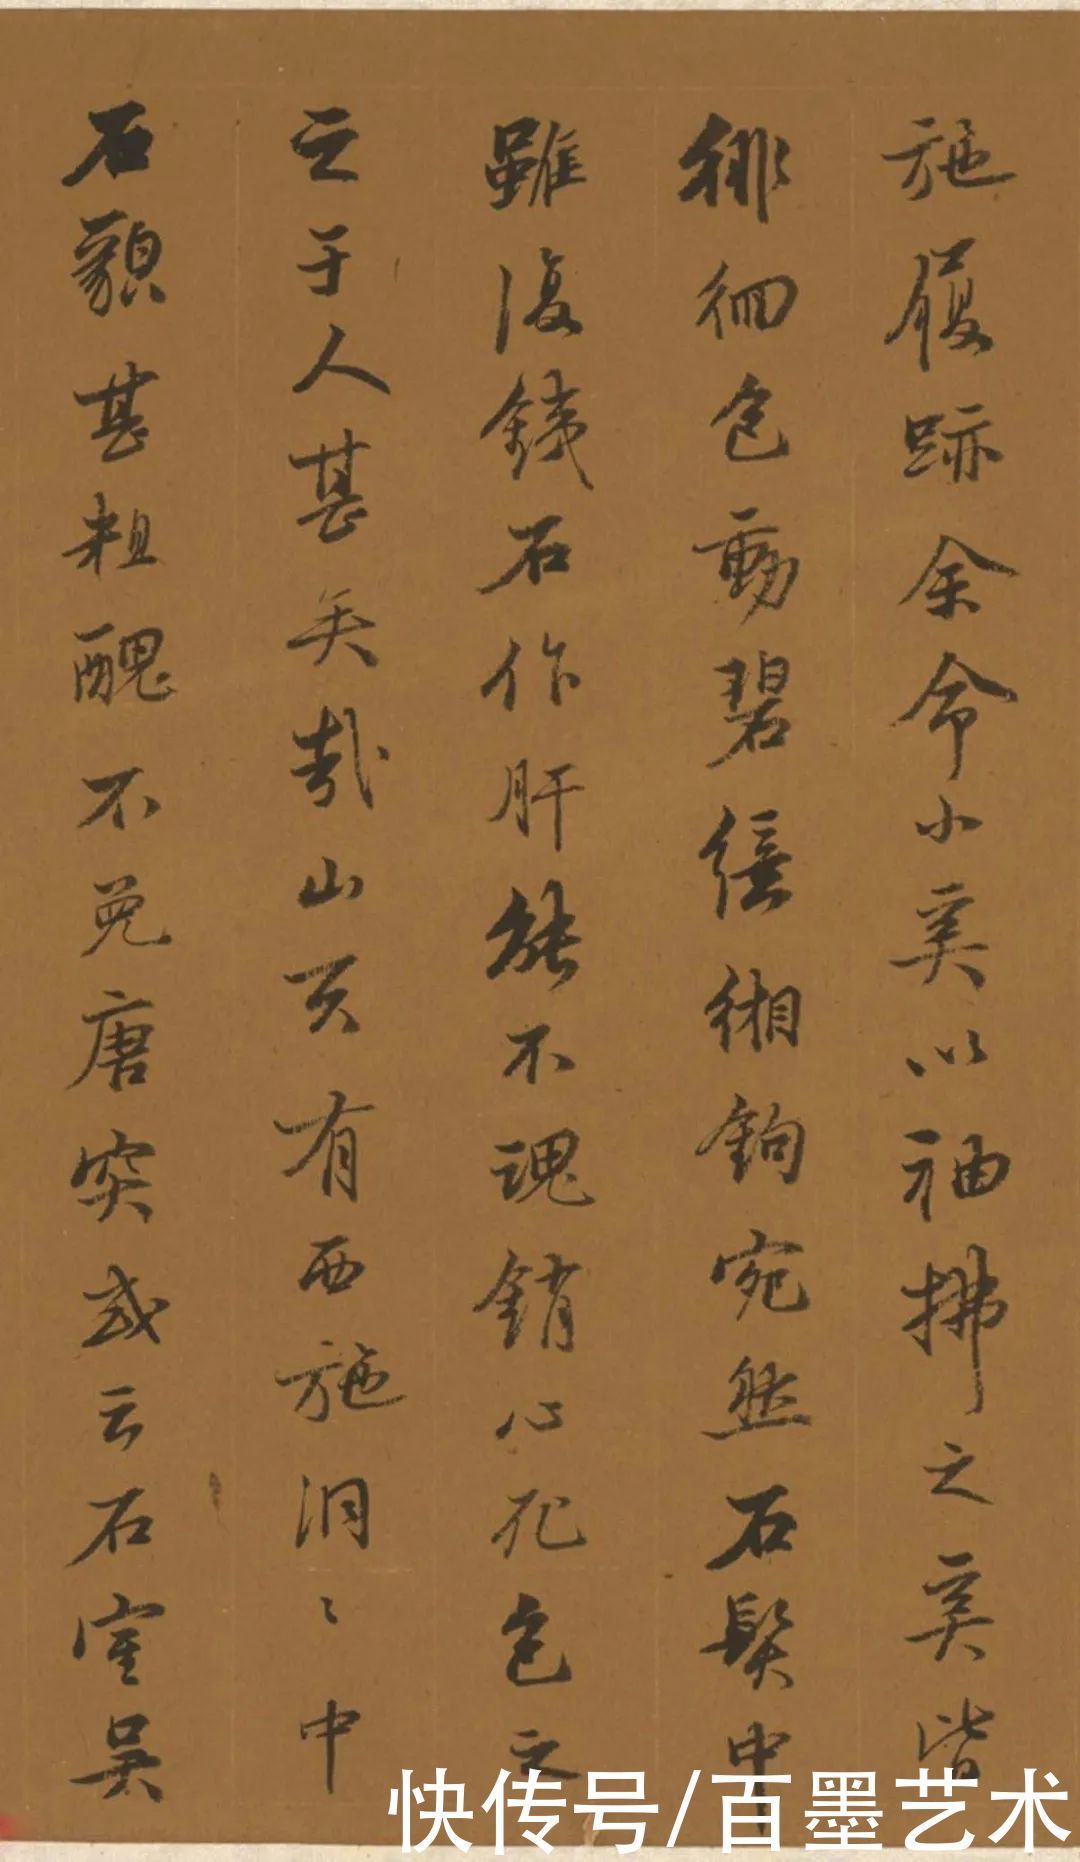 施履跡余命小奚以袖拂之奚皆
徘徊色動碧繶緗鉤宛然石髮中
雖復鐵石作肝能不魂銷心死色之
之于人甚矣哉山頁有西施洞〻中
石貌甚粗醜不免唐突或云石室吳
快传号/百墨艺术